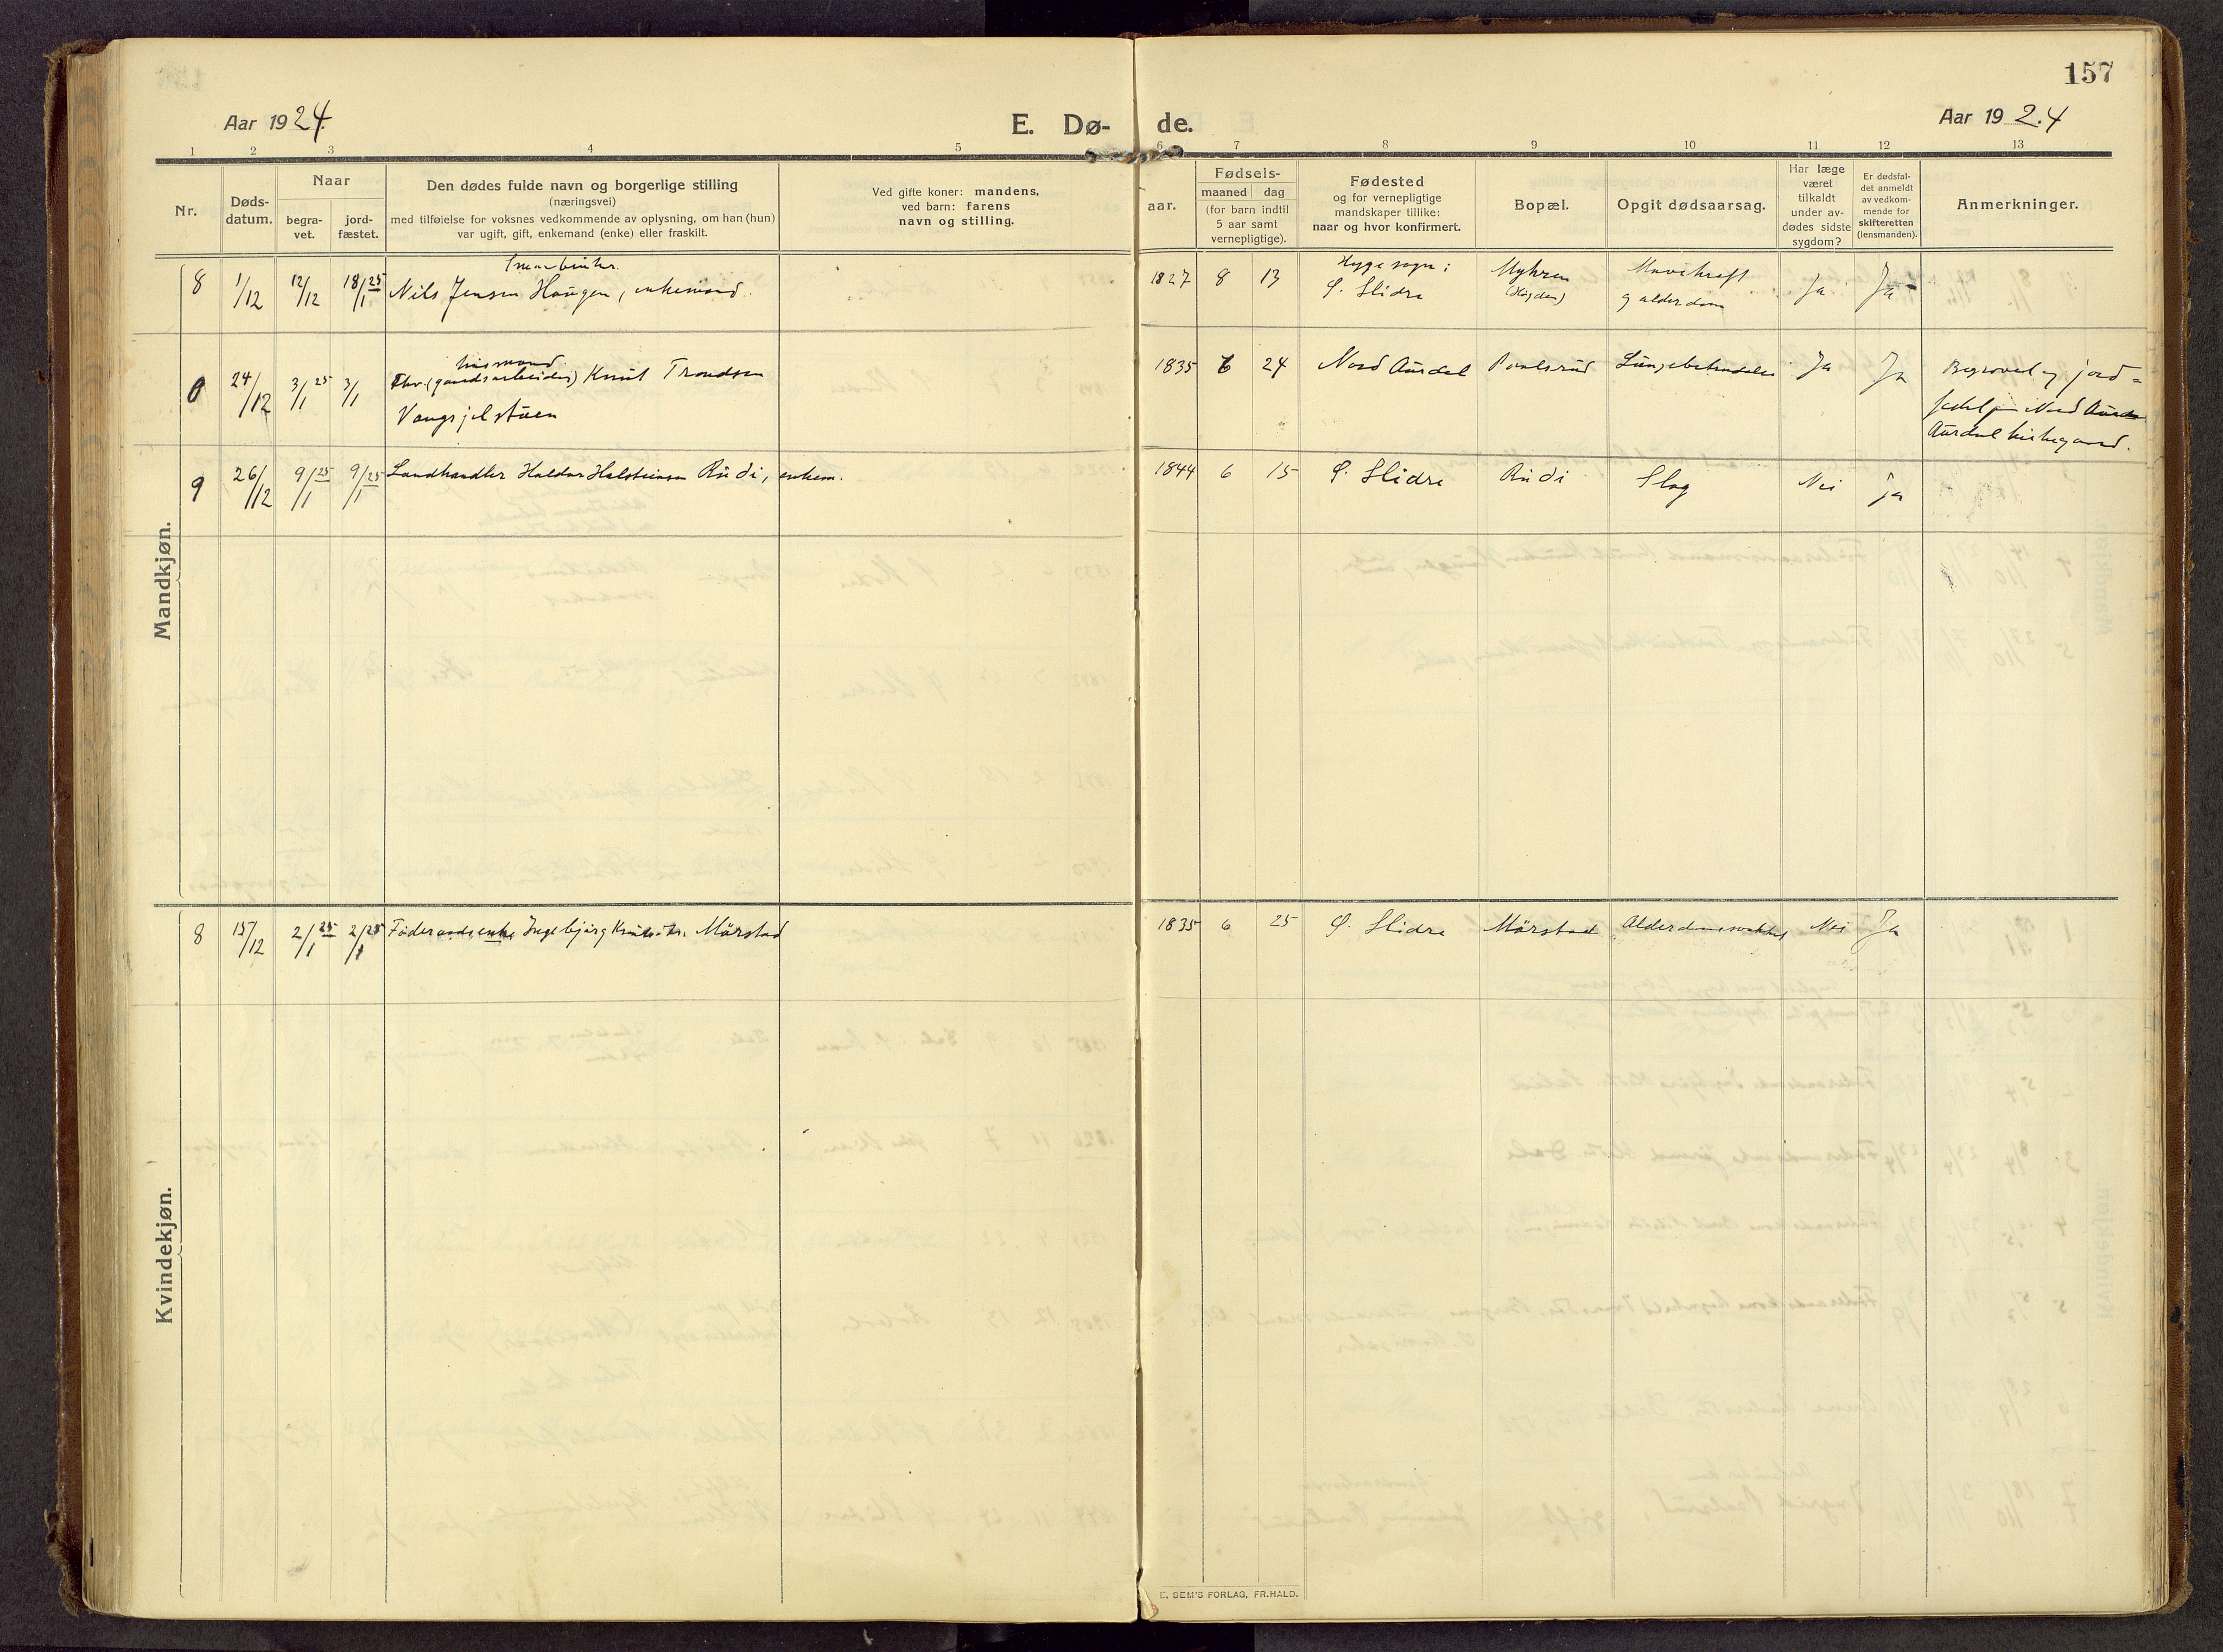 157
Aar 1924.
E. Dø-
de.
Aar 1924
1 2 3 4 5 6 7 8 9 10 11 12 13
Nr.
Døds-
datum.
Naar
begra-
vet.
jord-
fæstet.
Den dødes fulde navn og borgerlige stilling
(næringsvei)
med tilføielse for voksnes vedkommende av oplysning, om han (hun)
var ugift, gift, enkemand (enke) eller fraskilt.
Ved gifte koner: mandens,
ved barn: farens
navn og stilling.
aar.
Fødsels-
maaned dag
(for barn indtil
5 aar samt
vernepligtige).
Fødested
og for vernepligtige
mandskaper tillike:
naar og hvor konfirmert.
Bopæl.
Opgit dødsaarsag.
Har læge
været
tilkaldt
under av-
dødes sidste
sygdom?
Er dødsfal-
det anmeldt
av vedkom-
mende for
skifteretten
(lensmanden).
Anmerkninger.
Mandkjøn.
8 1/12 12/12 18/1 25 Nils Jensen Haugen, enkemand. 1827 8 13
Hygge sogn i
Ø. Slidre
Myhren
g alderdom
Ja Ja
0 24/12 3/1 25 3/1
husmand
(gaardsarbeider) Knut Trondsen
1835 6 24 Nord Aurdal Paalsrud Ja Ja
Begravet og jord=
Nord
Aurdal kirkegaard.
9 26/12 9/1 25 9/1 25 Landhandler Haldor Halsteinsen Rudi, enkem. 1844 6 15 Ø. Slidre Rudi Slag Nei Ja
Kvindekjøn.
8 15/12 2/1 25 2/1 25 Föderaadsenke Ingebjörg Knutsdtr. Mörstad 1835 6 25 Ø. Slidre Mörstad Alderdomssvakhet Nei Ja
E. SEM'S FORLAG, FR.HALD.